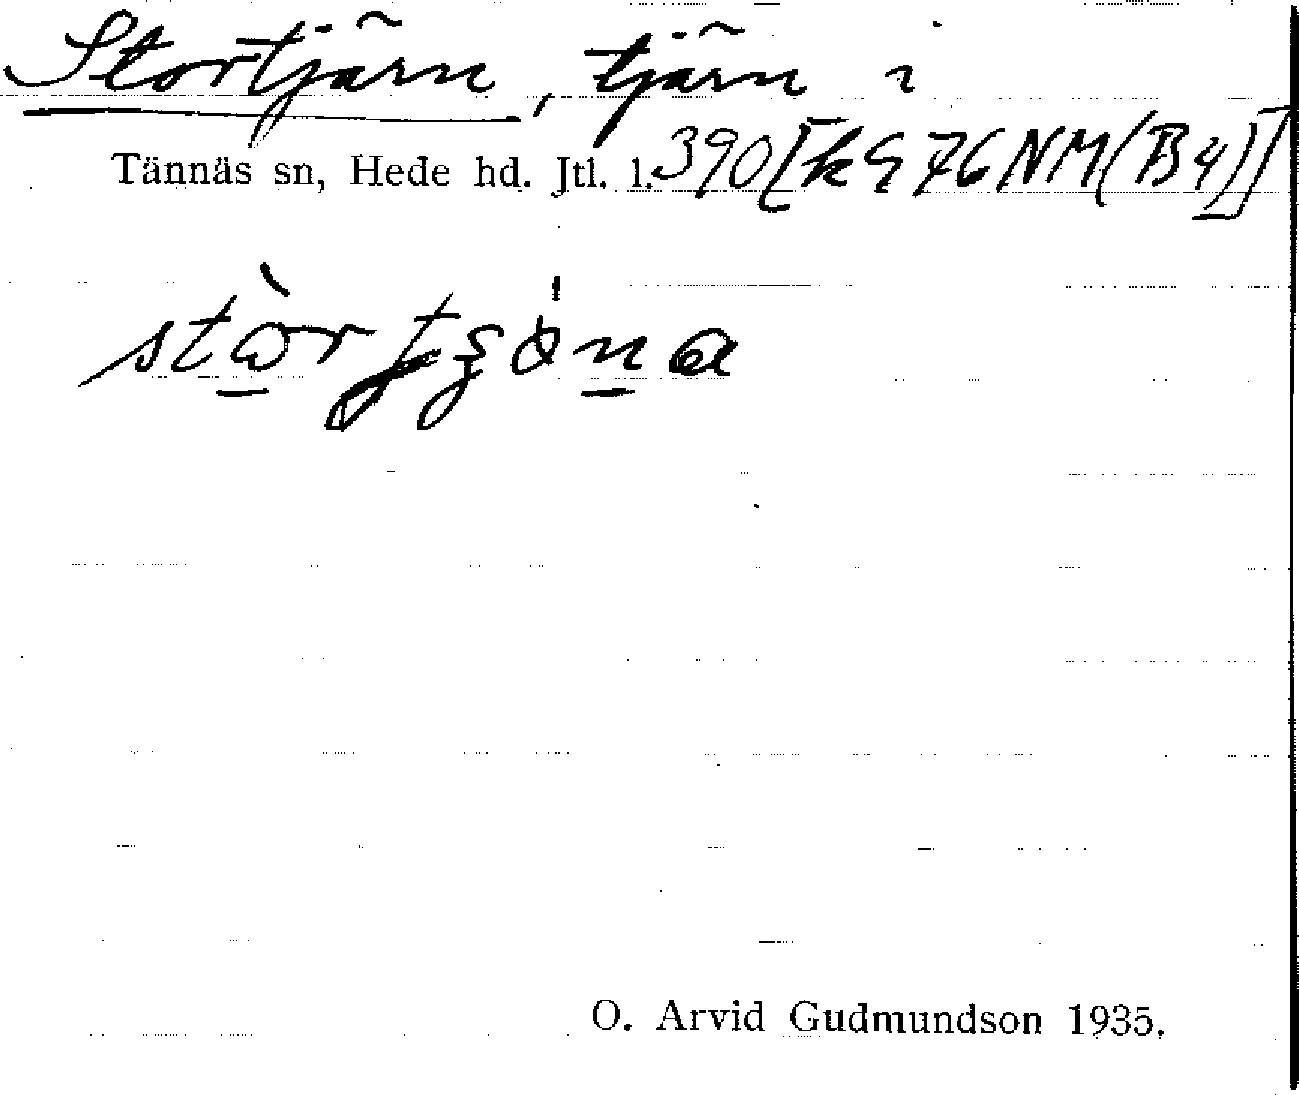 Stortjärn, tjärn i
Tännäs sn, Hede hd. Jtl. l. 390 [k976NM(B4)]
O. Arvid Gudmundson 1935.